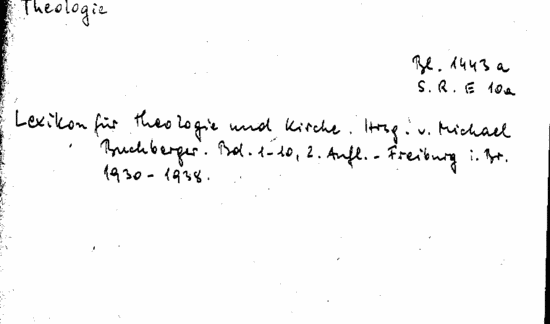 Theologie
Bl. 1443 a
S. R. E 10a
Lexikon für Theologie und Kirche. Hrsg. v. Michael
Buchberger. Bd. 1-10, 2. Aufl. - Freiburg i. Br.
1930 - 1938.